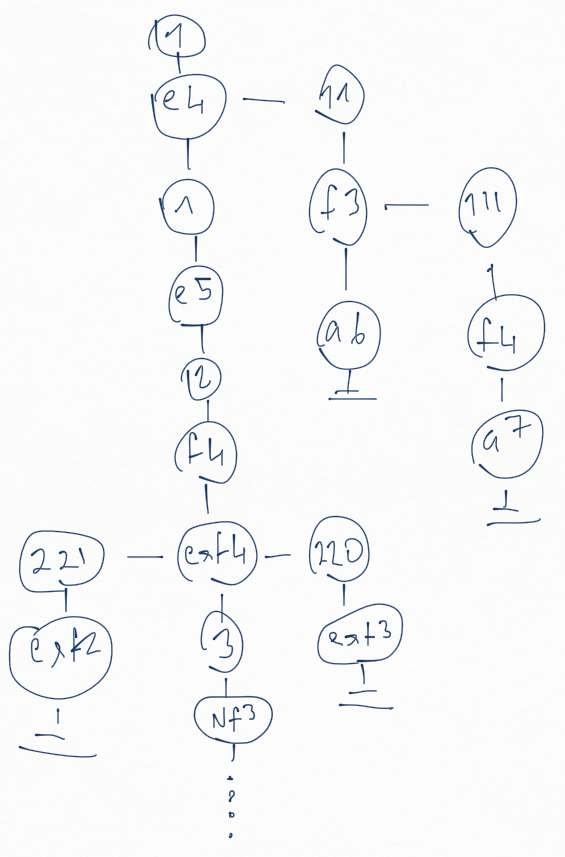 1
e4
11
1
f3
111
e5
a6
f4
12
a7
f4
221
exf4
220
exf2
3
exf3
Nf3